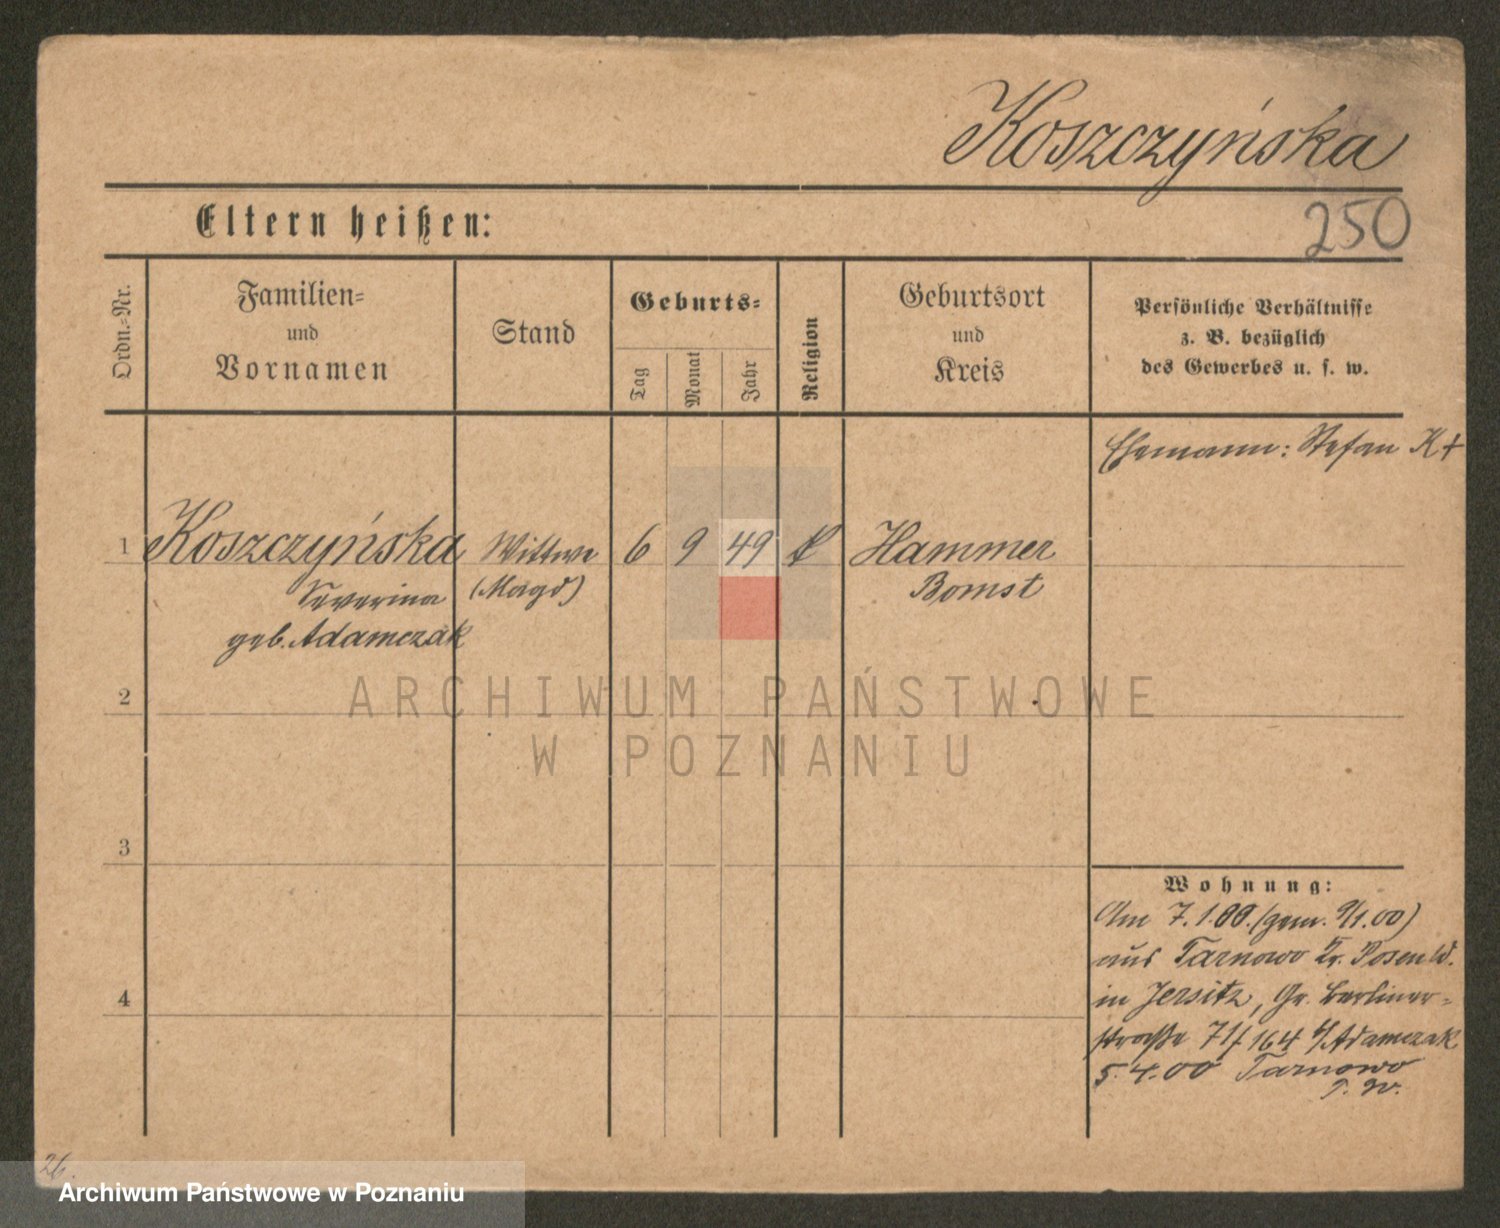 Koszczyńska
Eltern heißen:
250
Ordn.-Nr.
Familien-
und
Vornamen
Stand
Geburts-
Tag
Monat
Jahr
Religion
Geburtsort
und
Kreis
Persönliche Verhältnisse
z. B. bezüglich
des Gewerbes u. s. w.
Ehemann: Stefan K +
1 Koszczyńska Wittwe 6 9 49 k Hammer
Severina (Magd) Bomst
geb. Adamczak
2
ARCHIWUM PAŃSTWOWE
W POZNANIU
3
Wohnung:
Am 7.1.00. (gem. 9/1.00)
aus Tarnowo Kr. Posen W.
in Jersitz, Gr. Berliner-
4
straße 71/164 b/Adamczak
5.4.00 Tarnowo
P. W.
26.
Archiwum Państwowe w Poznaniu